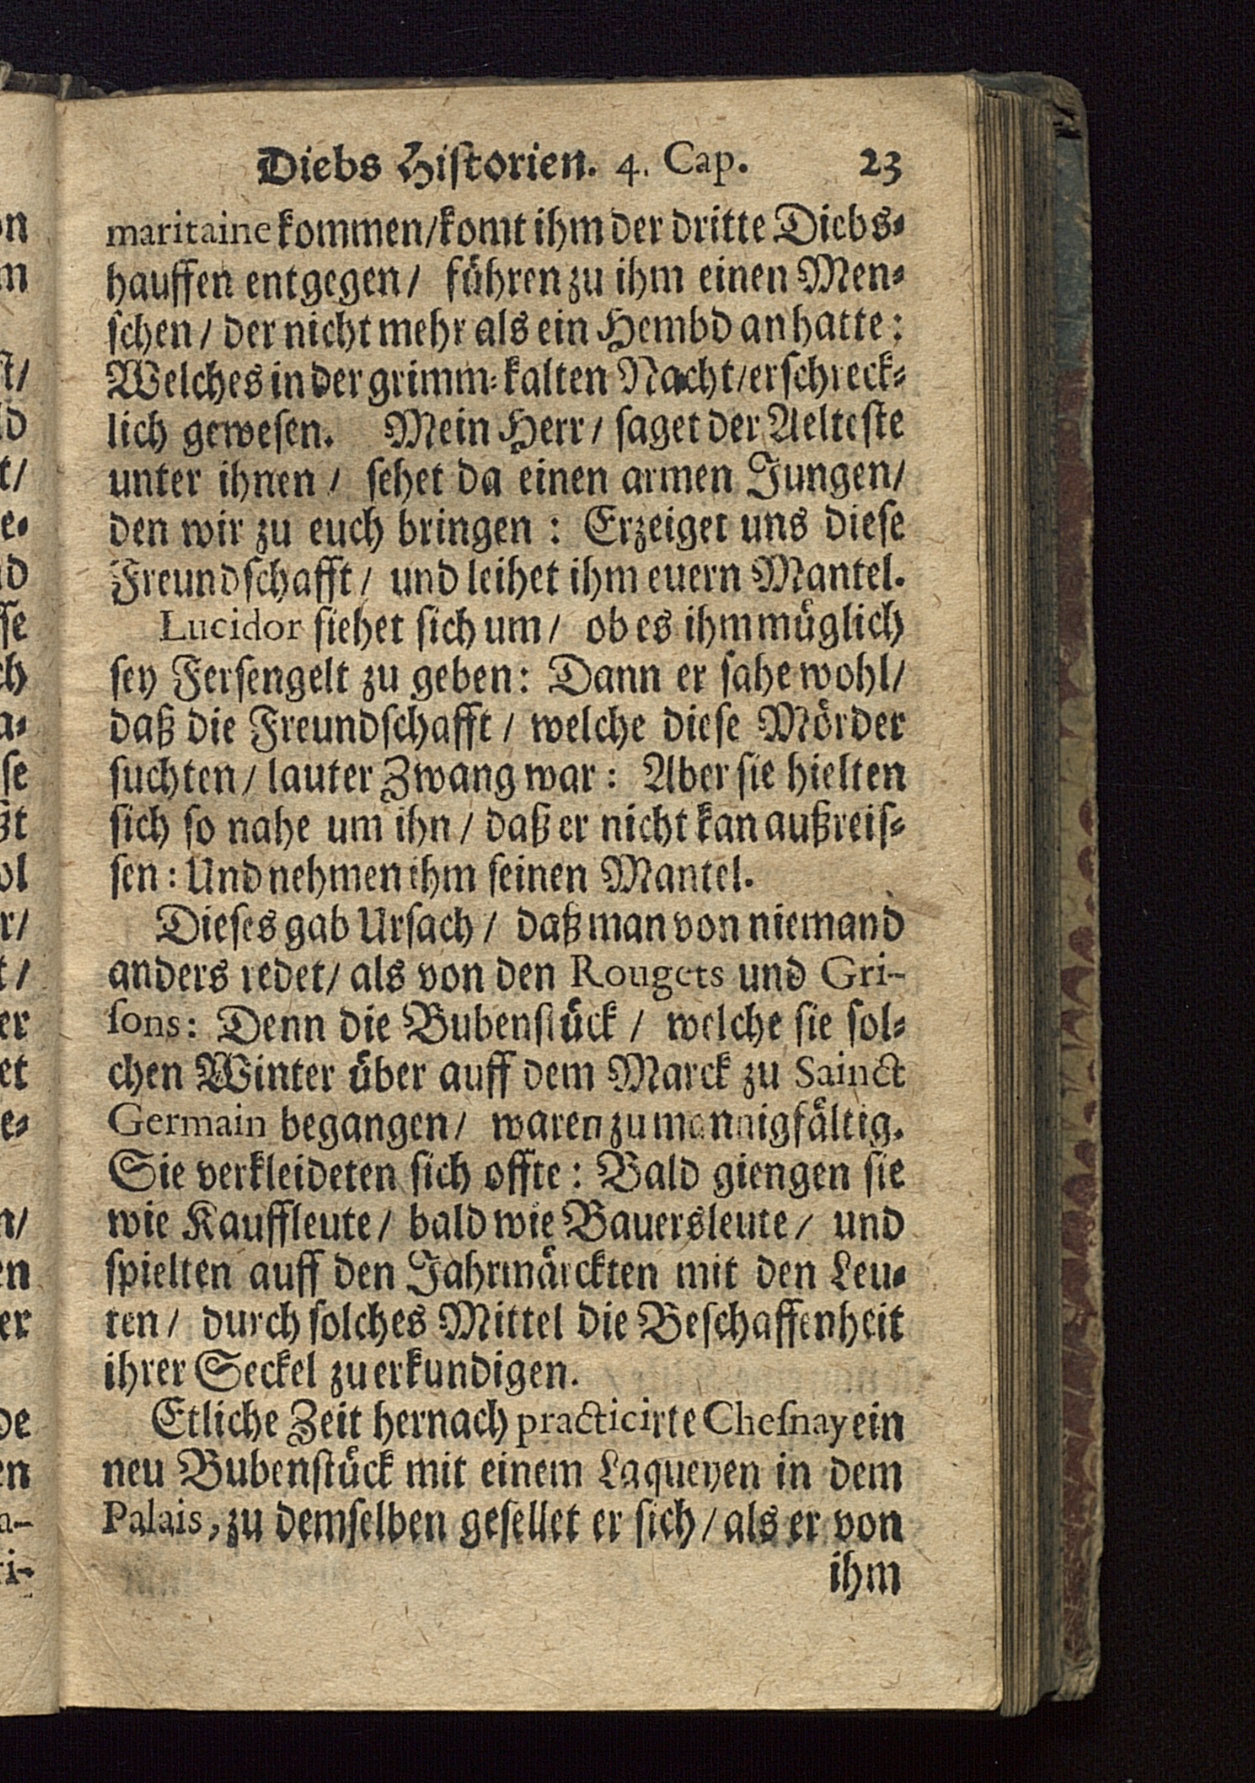 Diebs Hiſtorien. 4. Cap. 23
maritaine kommen/komt ihm der dritte Diebs⸗
hauffen entgegen/ führen zu ihm einen Men⸗
ſchen/ der nicht mehr als ein Hembd anhatte:
Welches in der grimm⸗kalten Nacht/erſchreck⸗
lich geweſen. Mein Herr/ ſaget der Aelteſte
unter ihnen/ ſehet da einen armen Jungen/
den wir zu euch bringen: Erzeiget uns dieſe
Freundſchafft/ und leihet ihm euern Mantel.
Lucidor ſiehet ſich um/ ob es ihm müglich
ſey Ferſengelt zu geben: Dann er ſahe wohl/
daß die Freundſchafft/ welche dieſe Mörder
ſuchten/ lauter Zwang war: Aber ſie hielten
ſich ſo nahe um ihn/ daß er nicht kan außreiſ⸗
ſen: Und nehmen ihm ſeinen Mantel.
Dieſes gab Urſach/ daß man von niemand
anders redet/ als von den Rougets und Gri-
ſons: Denn die Bubenſtück/ welche ſie ſol⸗
chen Winter über auff dem Marck zu Sainct
Germain begangen/ waren zu mannigfältig.
Sie verkleideten ſich offte: Bald giengen ſie
wie Kauffleute/ bald wie Bauersleute/ und
ſpielten auff den Jahrmärckten mit den Leu⸗
ten/ durch ſolches Mittel die Beſchaffenheit
ihrer Seckel zu erkundigen.
Etliche Zeit hernach practicirte Cheſnay ein
neu Bubenſtück mit einem Laqueyen in dem
Palais, zu demſelben geſellet er ſich/ als er von
ihm